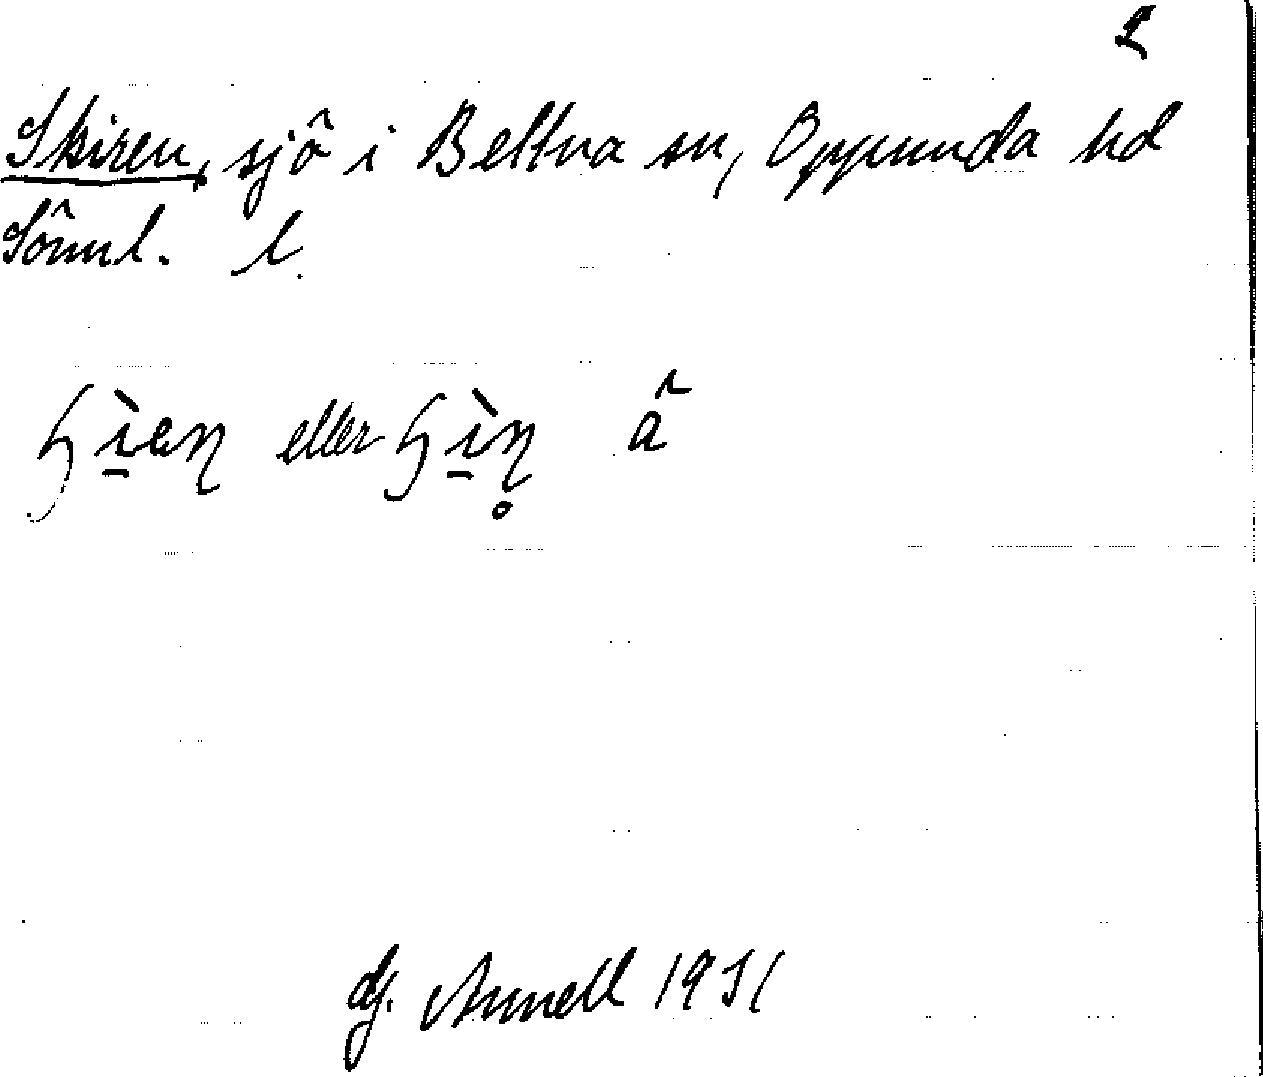 Skiren, sjö i Bettna sn, Oppunda hd
Söml. l.
eller â
G. Annell 1931